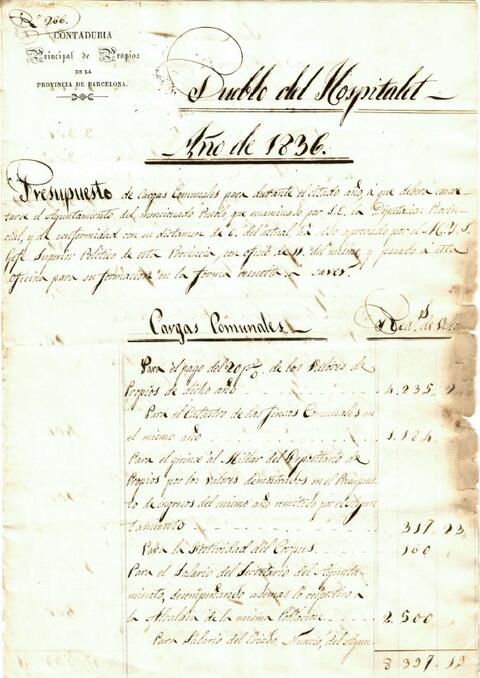 Nº 266.
CONTADURIA
Principal de Propios
DE LA
PROVINCIA DE BARCELONA.
Pueblo del Hospitalet
Año de 1836.
Presupuesto de cargas Comunales para durante el citado año, a que debera concre-
tarse el Ayuntamiento del mencionado Pueblo que examinado por S.E. la Diputacion Provin-
cial, y de conformidad con su dictamen de 6. del actual ha sido aprovado por el M.Y.S.
Gefe Superior Politico de esta Provincia, con oficio de 11. del mismo y pasado a esta
oficina para su formacion en la forma remite a saver.
Cargas Comunales Rea.s de Vello
Para el pago del 20 p% de los Valores de
Propios de dicho año 4.235.
Para el Catastro de las fincas Comunales en
el mismo año 1.184.
Para el quince al Millar del Depositario de
Propios por los valores demostrados en el Presupues-
to de ingresos del mismo año remitido por el Ayun-
tamiento 317. 23
Para la Festividad del Corpus 160
Para el Salario del Secretario del Ayunta-
miento, desempeñando ademas lo respectivo a
la Alcaldia de la misma Poblacion 2.500
Para Salario del Criado, Nuncio, del Ayun-
8 397 13